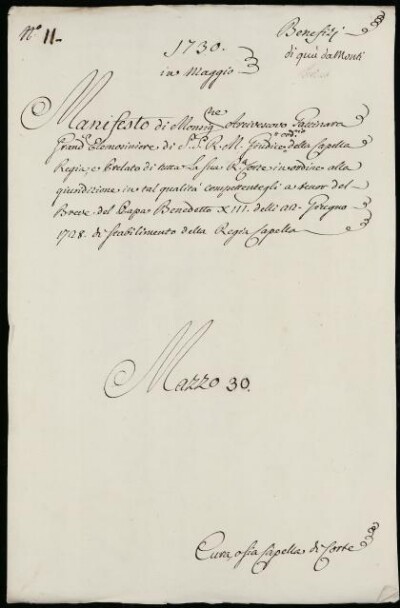 N.º 11.
Benefizj
di quà da Monti
1730.
in Maggio
Manifesto di Monsig.re Arcivescovo Gattinara
Grand' Elemosiniere di S. R. M. Giudice ord.rio della Capella
Regia, e Prelato di tutta la sua R.a Corte in ordine alla
giurisdizione in tal qualità competentegli a tenor del
Breve del Papa Benedetto XIII. delli Giugno
1728. di stabilimento della Regia Capella
Mazzo 30.
Cura, o sia Capella di Corte